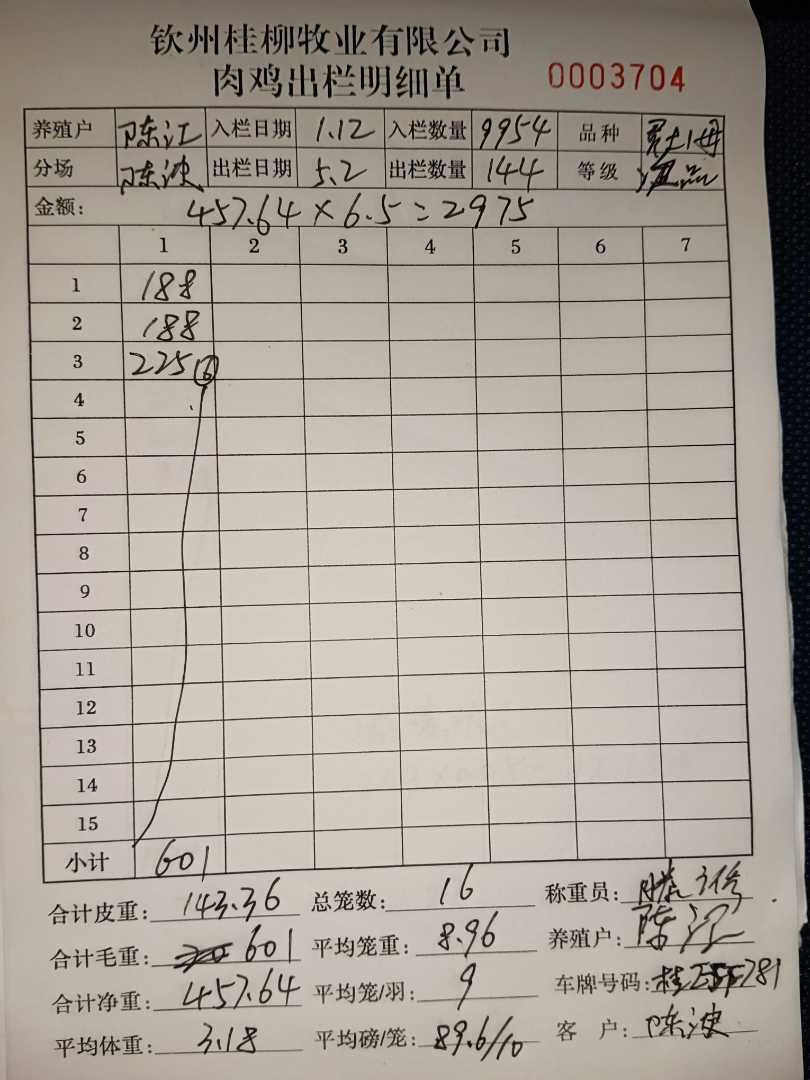 钦州桂柳牧业有限公司
肉鸡出栏明细单 0003704
养殖户 陈江 入栏日期 1.12 入栏数量 9954 品种
分场 陈波 出栏日期 5.2 出栏数量 144 等级
金额: 457.64×6.5=2975
1 2 3 4 5 6 7
1 188
2 188
3 225 16
4
5
6
7
8
9
10
11
12
13
14
15
小计 601
合计皮重: 143.36 总笼数: 16 称重员:
合计毛重: 601 平均笼重: 8.96 养殖户: 陈江
合计净重: 457.64 平均笼/羽: 9 车牌号码:
平均体重: 3.18 平均磅/笼: 89.6/10 客户: 陈波